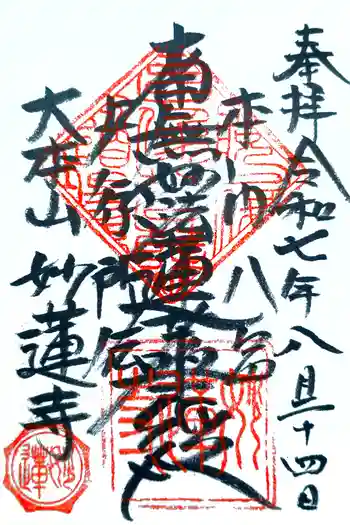 奉拝 令和七年八月二十四日
本門八品
南無妙法蓮華経
上行所伝
大本山 妙蓮寺